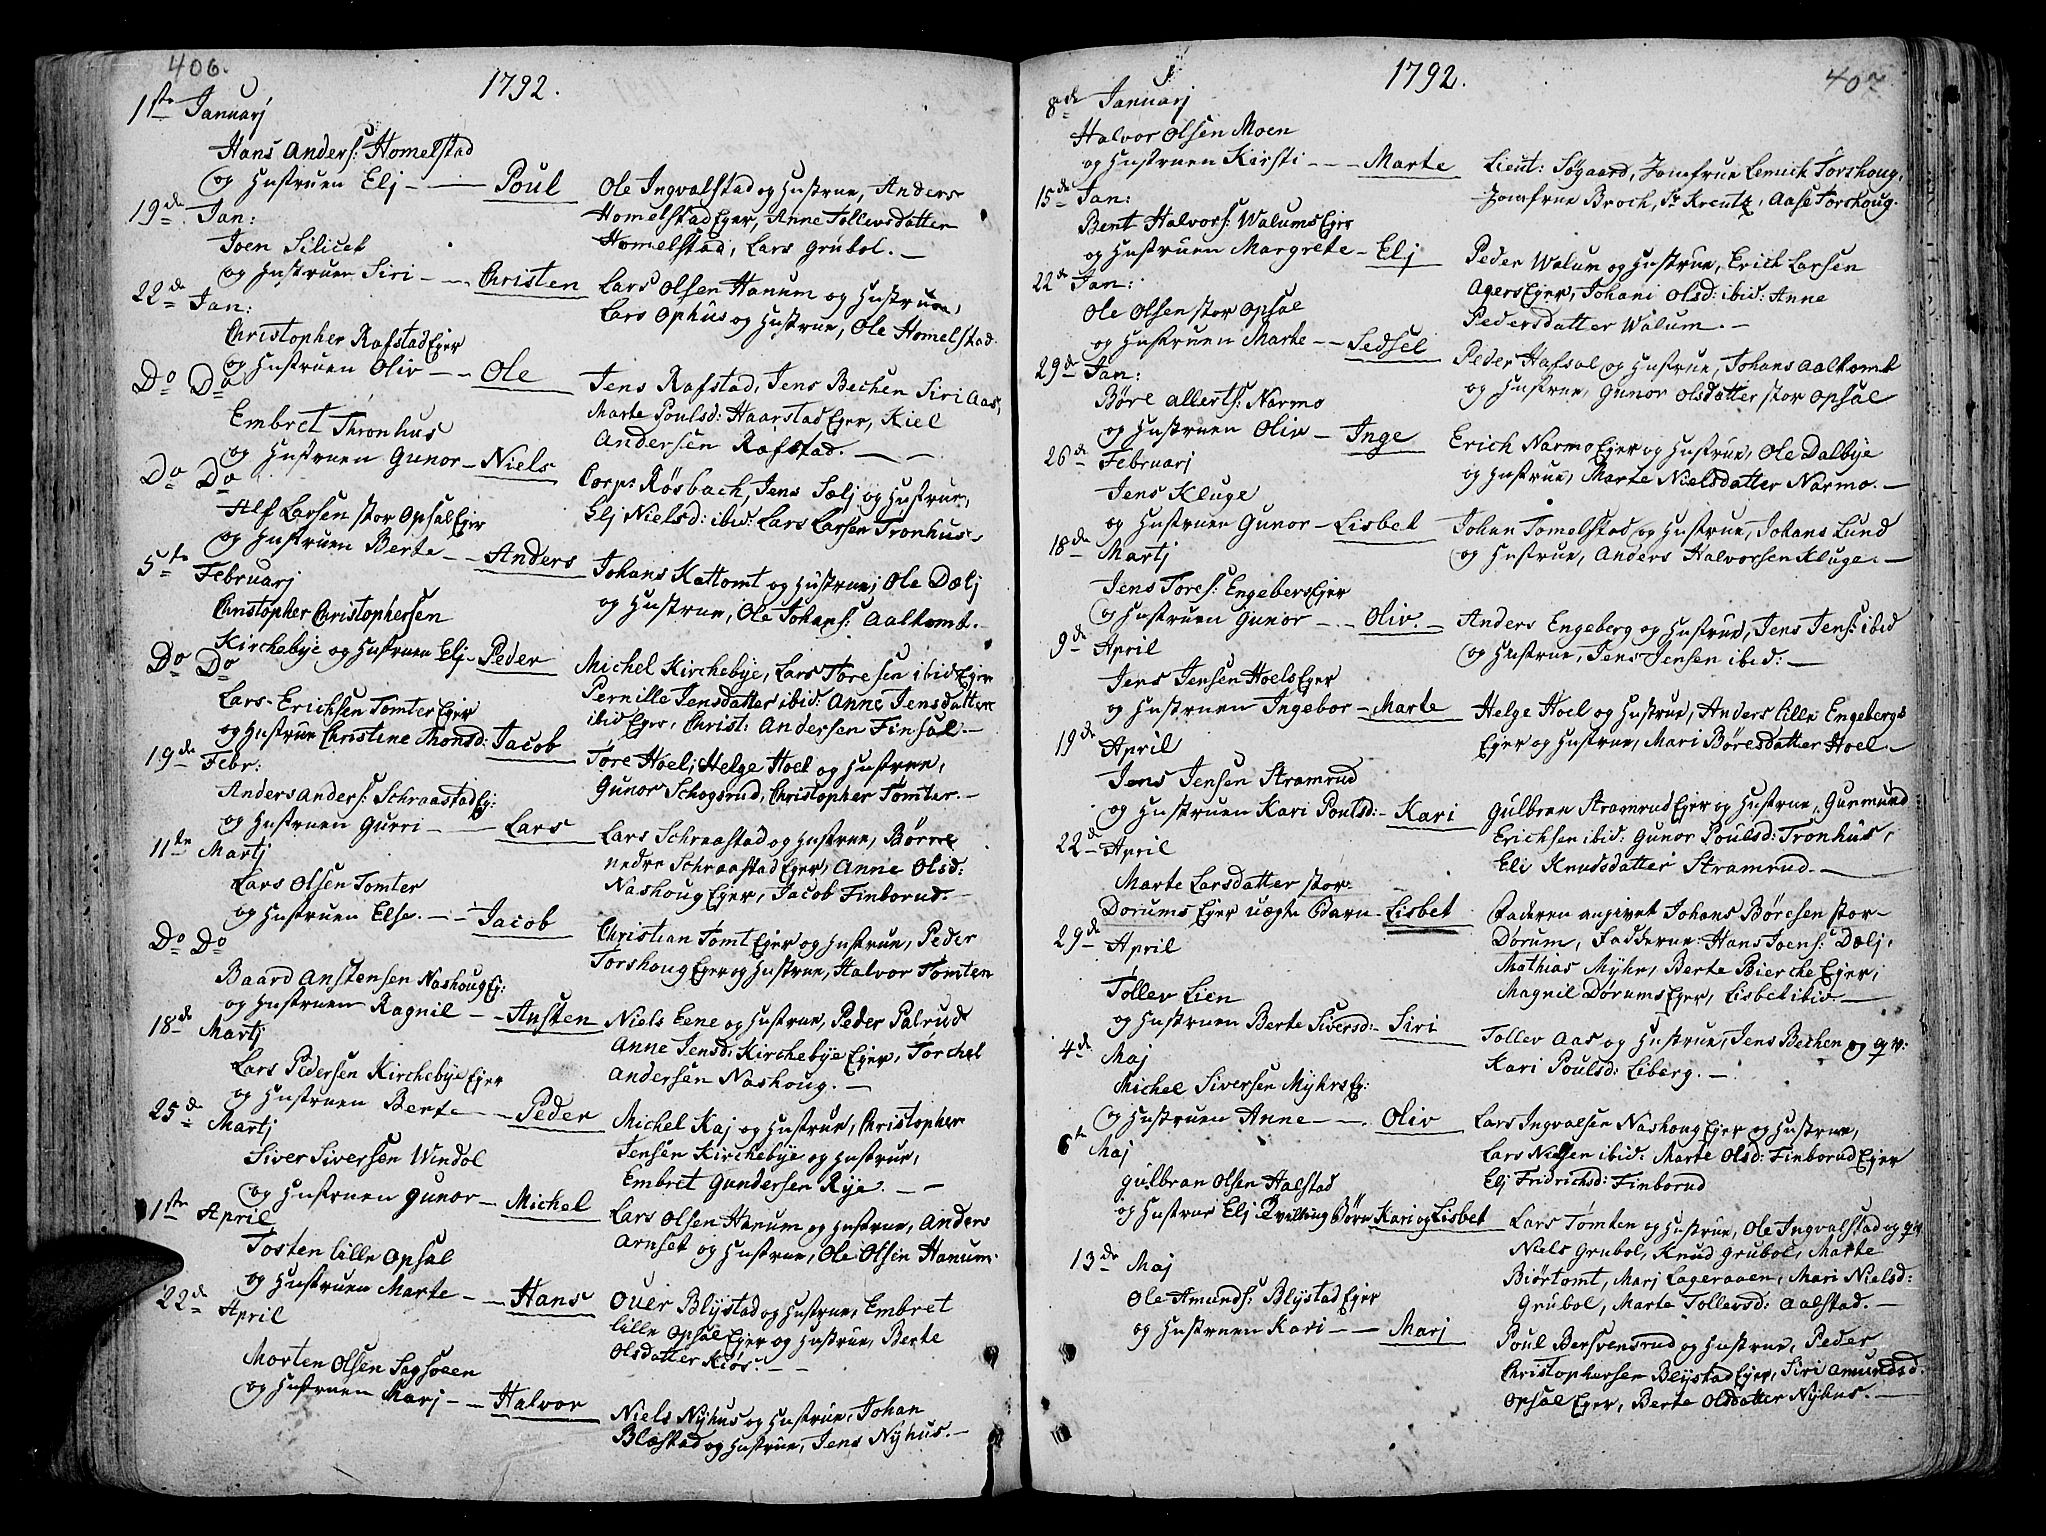 406.
1792.
1ste Januarj
Hans Anders: Homelstad
og Hustruen Elj — Poul Ole Ingvalstad og Hustrue, Anders
HomelstadEjer, Anne Tollevsdatter
Homelstad, Lars Grubol. —
19de Jan:
Joen Silicet
og Hustruen Siri — Christen Lars Olsen Hanum og Hustrue,
Lars Ophus og Hustrue, Ole Homelstad.
22de Jan:
Christopher RafstadEjer
og Hustruen Oliv — Ole Jens Rafstad, Jens Bechen Siri Aas,
Marte Poulsd: HaarstadEjer, Kiel
Andersen Rafstad. —
Do Do
Embret Thronhus
og Hustruen Gunor — Niels Corp: Røsbach, Jens Sælj og Hustrue,
Elj Nielsd: ibid: Lars Larsen Tronhus. —
Do Do
Alf Larsen stor OpsalEjer
og Hustruen Berte — Anders Johans Kattomt og Hustrue, Ole Dælj
og Hustrue, Ole Johans: Aalkomt. —
5te Februarj
Christopher Christophersen
Kirchebye og Hustruen Elj — Peder Michel Kirchebye, Lars Toresen ibidEjer
Pernille Jensdatter ibid: Anne Jensdatter
ibidEjer, Christ: Andersen Finsal. —
Do Do
Lars Erichsen TomterEjer
og Hustrue Christine Thonsd: Jacob Tore Hoel, Helge Hoel og Hustrue,
Gunor Schogsrud, Christopher Tømter. —
19de Febr:
Anders Anders: SchraastadEj:
og Hustruen Gurri — Lars Lars Schraastad og Hustrue, Børre
nedre SchraastadEjer, Anne Olsd:
NashougEjer, Jacob Finborud. —
11te Martj
Lars Olsen Tomter
og Hustruen Else. — Jacob Christian TomtEjer og Hustrue, Peder
TorshougEjer og Hustrue, Halvor Tømten
Do Do
Baard Anstensen NashougEj:
og Hustruen Ragnil — Ansten Niels Eene og Hustrue, Peder Palrud
Anne Jensd: KirchebyeEjer, Torchel
Andersen Nashoug. —
18de Martj
Lars Pedersen KirchebyeEjer
og Hustruen Berte — Peder Michel Kaj og Hustrue, Christopher
Jensen Kirchebye og Hustrue,
Embret Gundersen Rye. —
25de Martj
Siver Siversen Windol
og Hustruen Gunor — Michel Lars Olsen Hanum og Hustrue, Anders
Arnset og Hustrue, Ole Olsen Hanum.
1ste April
Tosten lille Opsal
og Hustruen Marte — Hans Ouer Blystad og Hustrue, Embret
lille OpsalEjer og Hustrue, Berte
Olsdatter Kiøs. —
22de April
Morten Olsen Sagsveen
og Hustruen Marj — Halvor Niels Nyhus og Hustrue, Johan
Blæstad og Hustrue, Jens Nyhus. —
1792.
407
8de Januarj
Halvor Olsen Moen
og Hustruen Kirsti — Marte Lieut: Søgaard, Jomfrue Lemich Torshoug,
Jomfrue Broch, Sr Kreutz, Aase Torshoug.
15de Jan:
Bent Halvors: WalumsEjer
og Hustruen Margrete — Elj Peder Walum og Hustrue, Erich Larsen
AgersEjer, Johani Olsd: ibid: Anne
Pedersdatter Walum. —
22de Jan:
Ole Olsen stor Opsal
og Hustruen Marte — Sedsel Peder Hafsal og Hustrue, Johans Aalkomt
og Hustrue, Gunor Olsdatter stor Opsal
29de Jan:
Børe Allerts: Narmo
og Hustruen Oliv — Inge Erich NarmoEjer og Hustrue, Ole Dalbye
og Hustrue, Marte Nielsdatter Narmo. —
26de Februarj
Jens Kluge
og Hustruen Gunor — Lisbet Johan Tomelstad og Hustrue, Johans Lund
og Hustrue, Anders Halvorsen Kluge. —
18de Martj
Jens Tores: EngebersEjer
og Hustruen Gunor — Oliv. Anders Engeberg og Hustrue, Jens Jens: ibid
og Hustrue, Jens Jensen ibid: —
9de April
Jens Jensen HoelsEjer
og Hustruen Ingebor — Marte Helge Hoel og Hustrue, Anders lille Engebergs
Ejer og Hustrue, Mari Børesdatter Hoel. —
19de April
Jens Jensen Stramrud
og Hustruen Kari Poulsd: — Kari Gulbran StramrudEjer og Hustrue, Gunmund
Erichsen ibid: Gunor Poulsd: Tronhus,
Eli Knudsdatter Stramrud. —
22de April
Marte Larsdatter stor-
DorumsEjer uægte Barn — Lisbet Faderen angivet Johans Børesen stor-
Dørum, Fadderne: Hans Joens: Dælj,
Mathias Myhr, Berte BiercheEjer,
Magnil DørumsEjer, Lisbet ibid. —
29de April
Tollev Lien
og Hustruen Berte Siversd: — Siri Tollev Aas og Hustrue, Jens Bechen og qv:
Kari Poulsd: Liberg. —
4de Maj
Michel Siversen MyhrsEj:
og Hustruen Anne — Oliv Lars Ingvalsen NashougEjer og Hustrue,
Lars Nilsen ibid: Marte Olsd: FinborudEjer
Elj Fridrichsd: Finborud
6te Maj
Gulbran Olsen Halstad
og Hustrue Elj Tvilling Børn Kari og Lisbet Lars Tømten og Hustrue, Ole Ingvalstad og qv:
Niels Grubol, Knud Grubol, Marte
Biørtomt, Marj Lageraaen, Mari Nielsd:
Grubol, Marte Tollevsd: Aalstad. —
13de Maj
Ole Amunds: BlystadEjer
og Hustruen Kari — Marj Poul Bersvensrud og Hustrue, Peder
Christophersen BlystadEjer, Siri Amundsd.
OpsalEjer, Berte Olsdatter Nyhus. —